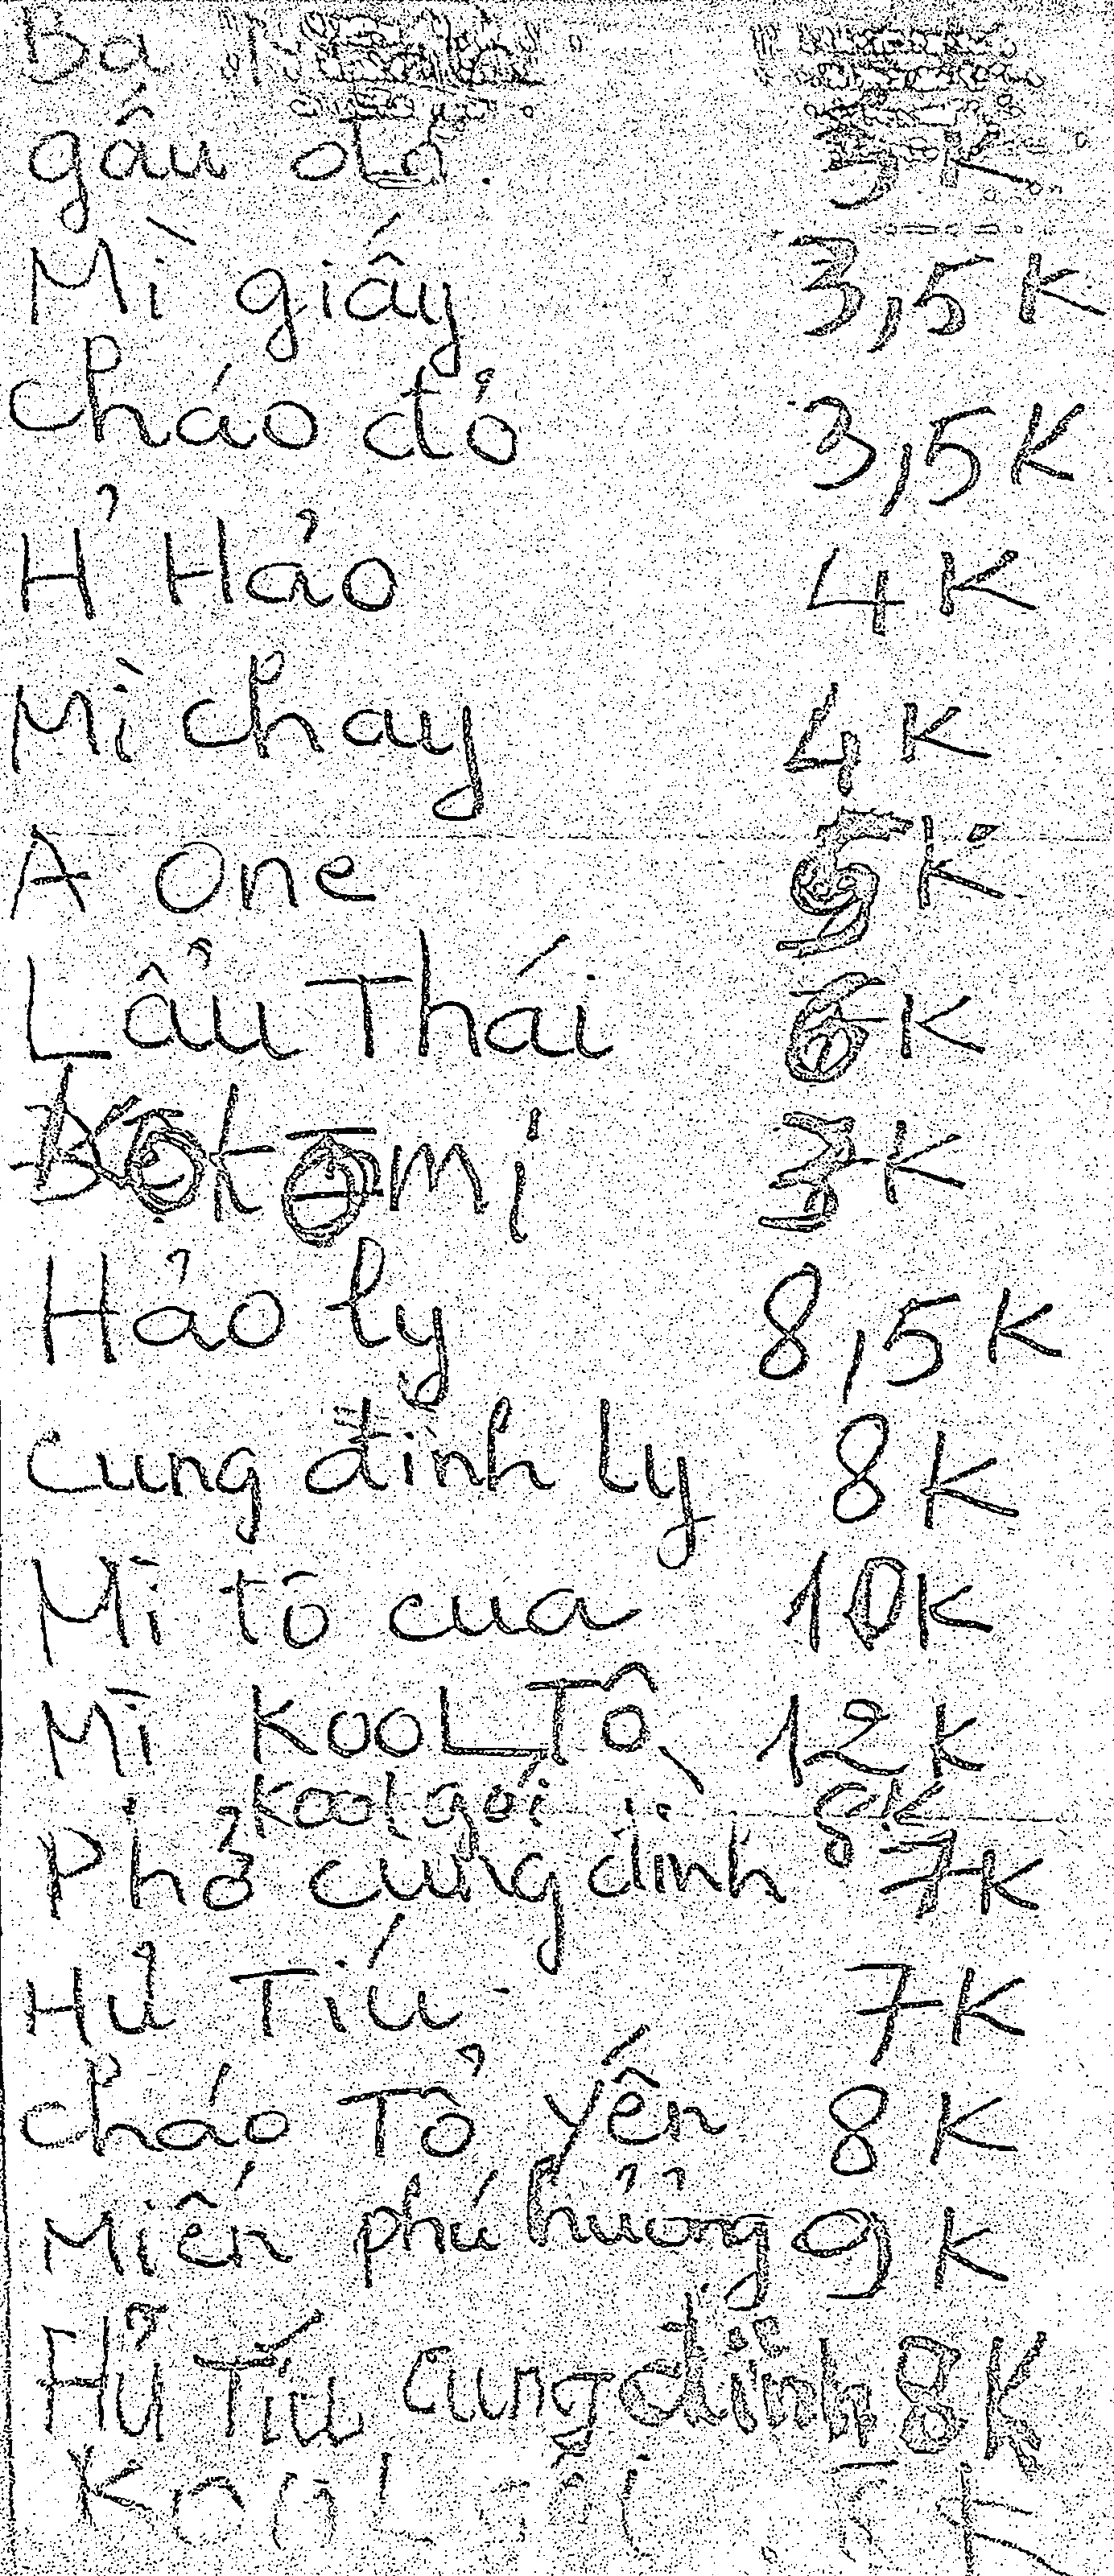 Ba
gấu đỏ. 3K
Mì giấy 3,5K
Cháo đỏ 3,5K
H' Hảo 4K
Mì chay 4K
A One 5K
Lẩu Thái 6K
Kokomi 3K
Hảo ly 8,5K
Cung đình ly 8K
Mì tô cua 10K
Mì KOOL Tô 12K
Kool gói 8K
Phở cung đình 7K
Hủ Tiếu 7K
Cháo Tổ yến 8K
Miến phú hương 9K
Hủ Tíu cung đình 8K
Kool gói